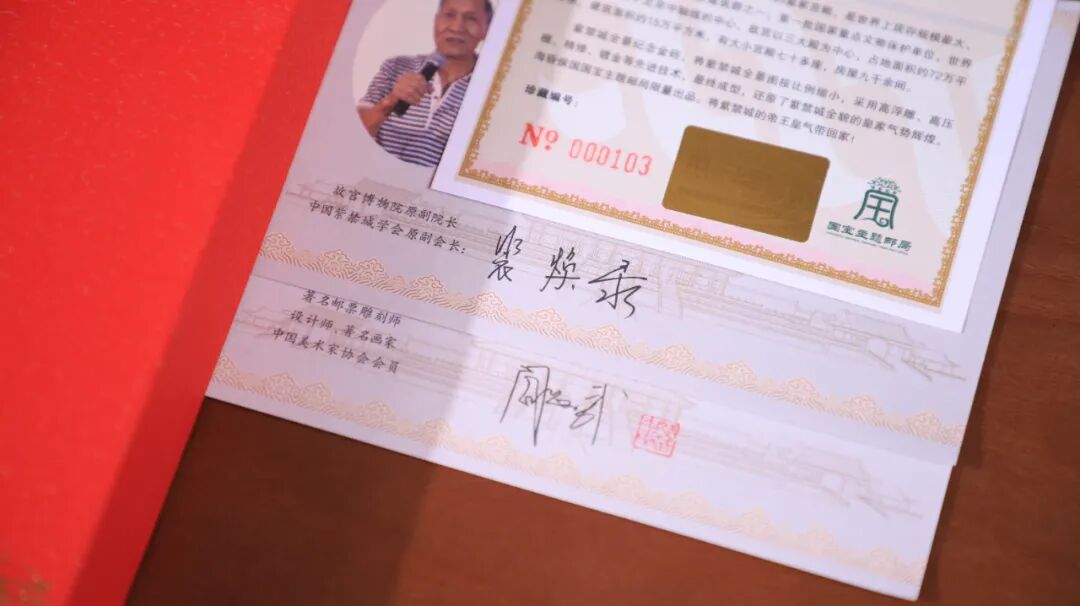 皇家宫殿，是世界上现存规模最大、
之一，第一批国家重点文物保护单位，世界
中轴线的中心，故宫以三大殿为中心，占地面积约72万平
建筑面积约15万平方米，有大小宫殿七十多座，房屋九千余间。
紫禁城全景纪念金砖，将紫禁城全景图按比例缩小，采用高浮雕、高压
模、精修、镀金等先进技术，最终成型，还原了紫禁城全貌的皇家气势辉煌。
国宝主题邮局限量出品。将紫禁城的帝王皇气带回家！
珍藏编号：
Nº 000103
国宝主题邮局
故宫博物院原副院长
中国紫禁城学会原副会长：
裴焕录
著名邮票雕刻师
设计师、著名画家
中国美术家协会会员